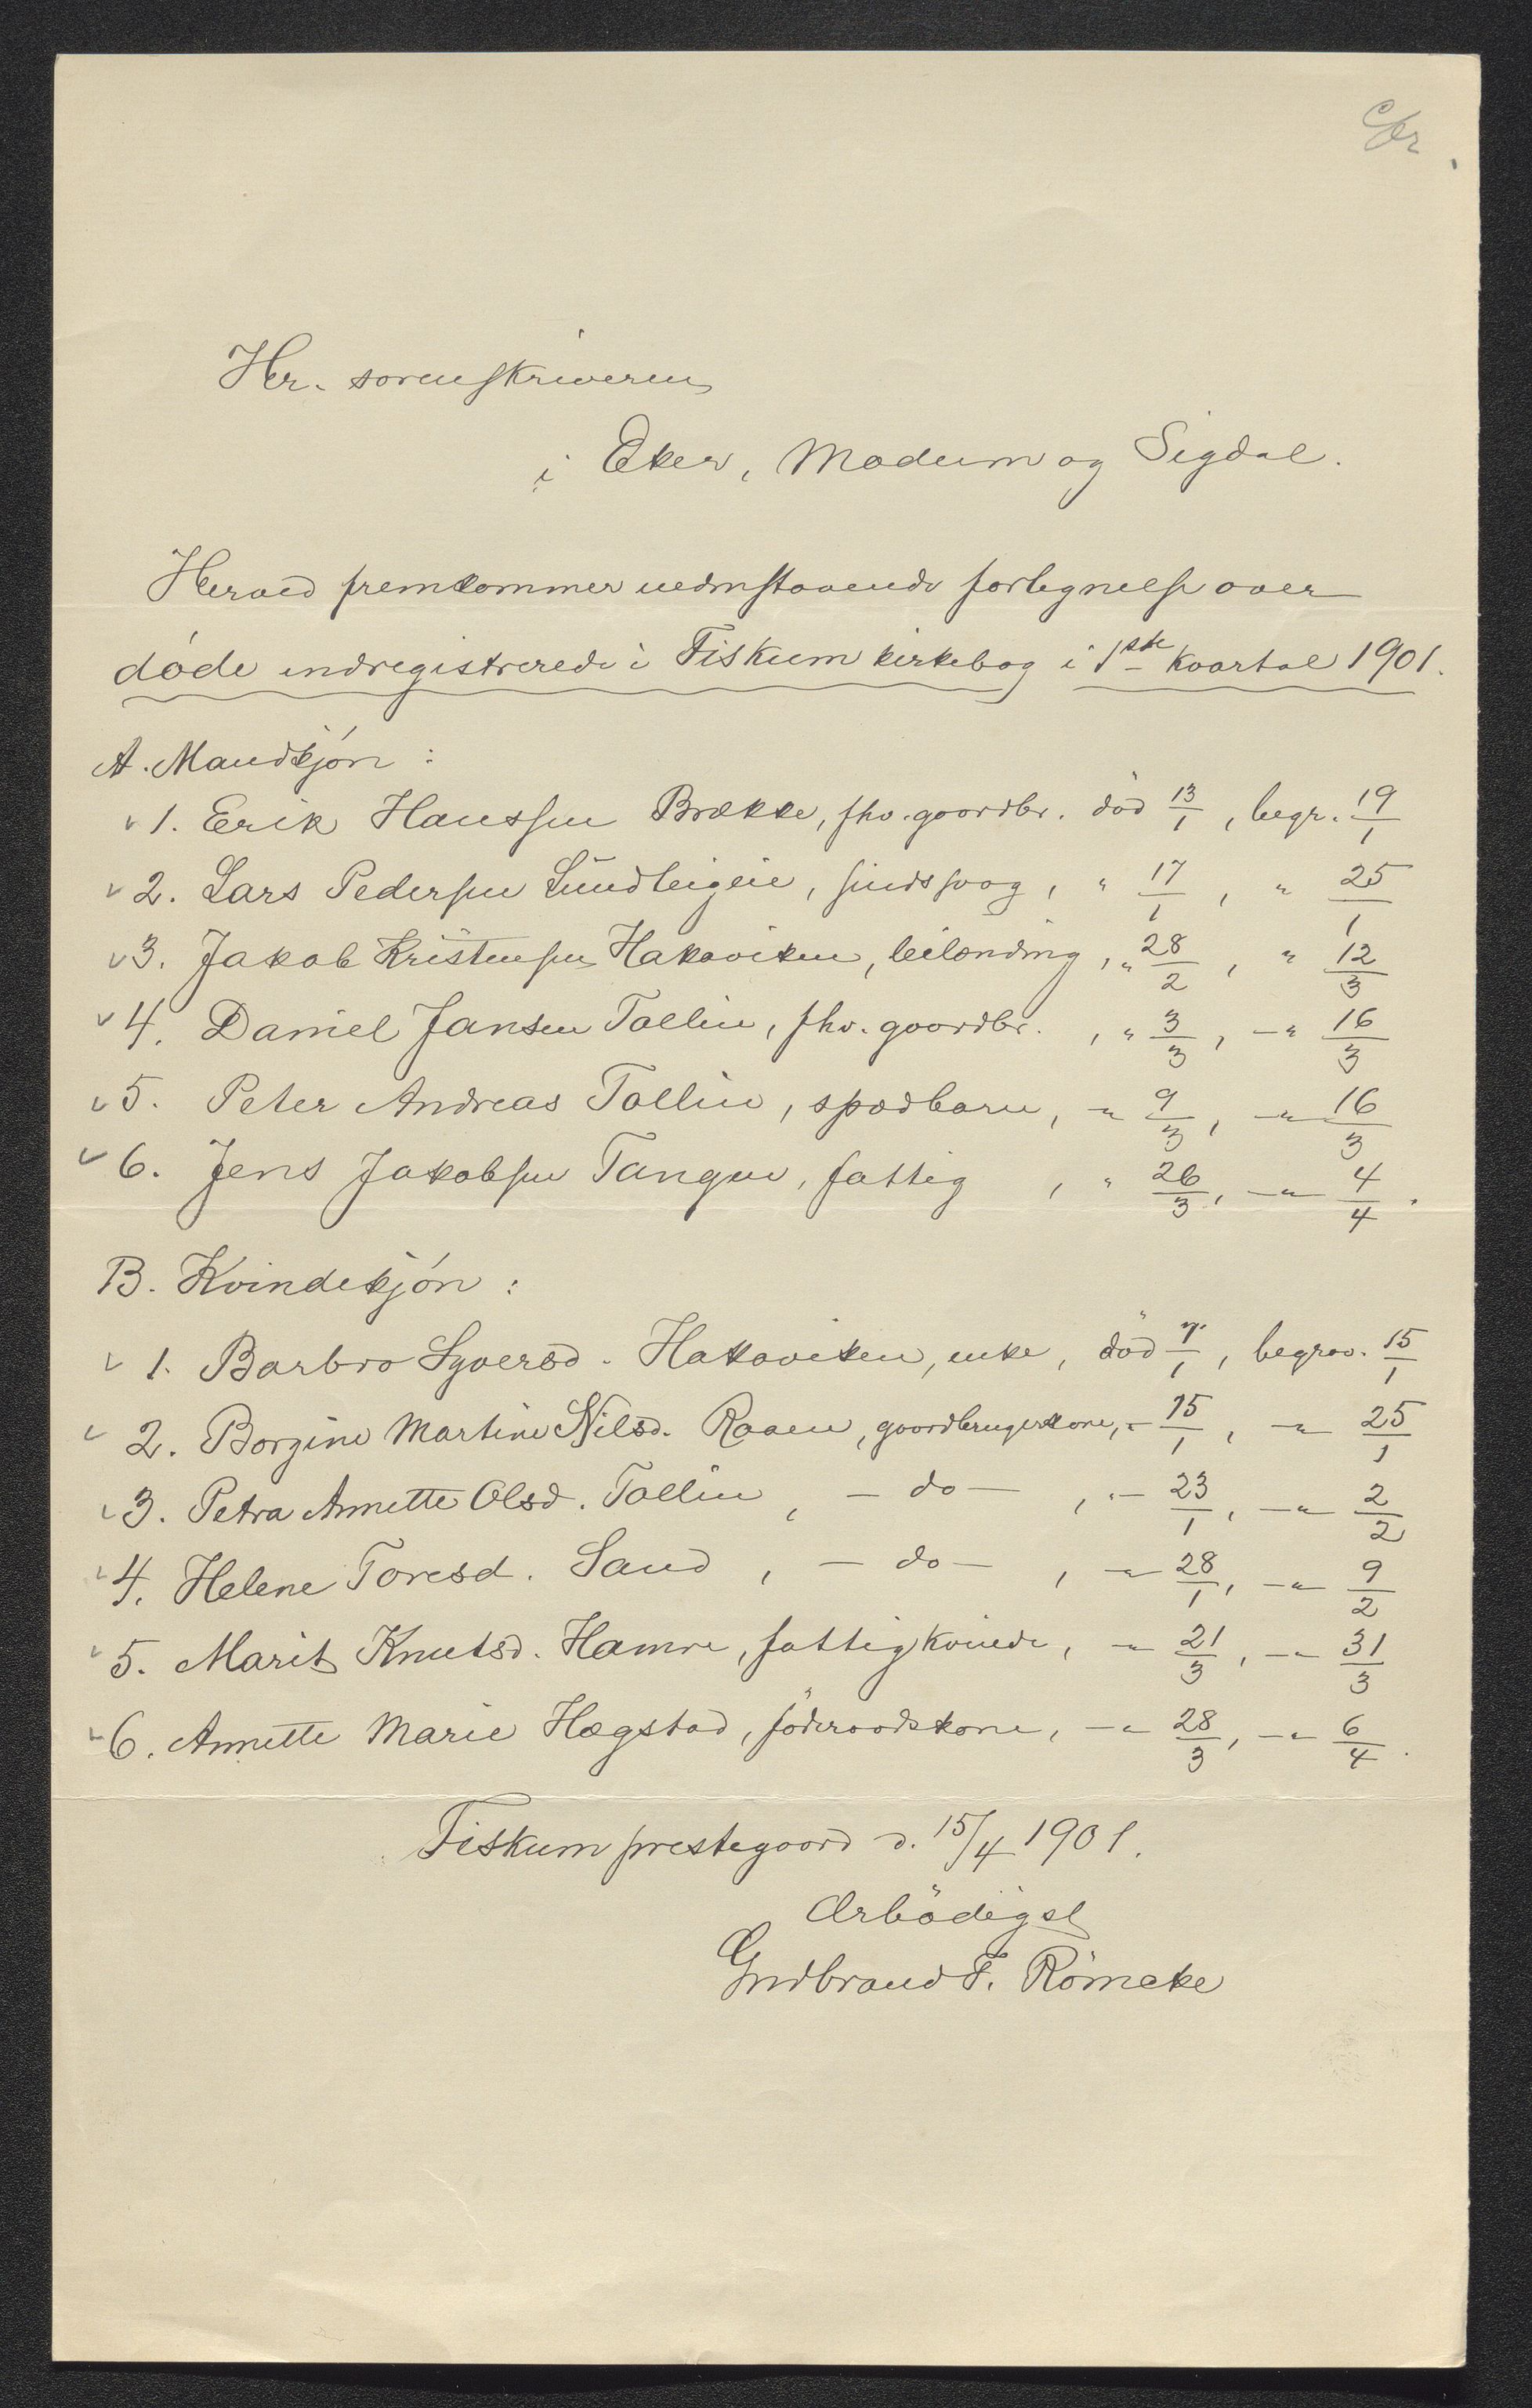 Hr. sorenskriveren
i Eker, Modum og Sigdal.
Herved fremkommer nedenstaaende fortegnelse over
døde indregistrerede i Fiskum kirkebog i 1ste kvartal 1901.
A. Mandkjøn :
1. Erik Hanssen Brække, fhv. gaardbr. død 13/1, begr. 19/1
2. Lars Pedersen Lundteigeie, sindssvag, " 17/1, " 25/1
3. Jakob Kristensen Hakaviken, leilænding, " 28/2, " 12/3
4. Daniel Jansen Tollin, fhv. gaardbr. , " 3/3, -"- 16/3
5. Peter Andreas Tollin, spædbarn, -"- 9/3, -"- 16/3
6. Jens Jakobsen Tangen, fattig , " 26/3, -"- 4/4.
B. Kvindekjøn :
1. Barbro Syversd. Hakaviken, enke, død 7/1, begrav. 15/1
2. Borgine Martine Nilsd. Raaen, gaardbrugerkone, -"- 15/1, -"- 25/1
3. Petra Annette Olsd. Tollin, - do - , "- 23/1, -"- 2/2
4. Helene Toresd. Sand, - do - , -"- 28/1, -"- 9/2
5. Marit Knutsd. Hamre, fattigkvinde, -"- 21/3, -"- 31/3
6. Annette Marie Hægstad, föderaadskone, -"- 28/3, -"- 6/4.
Fiskum prestegaard d. 15/4 1901.
Ærbödigst
Gudbrand F. Römcke